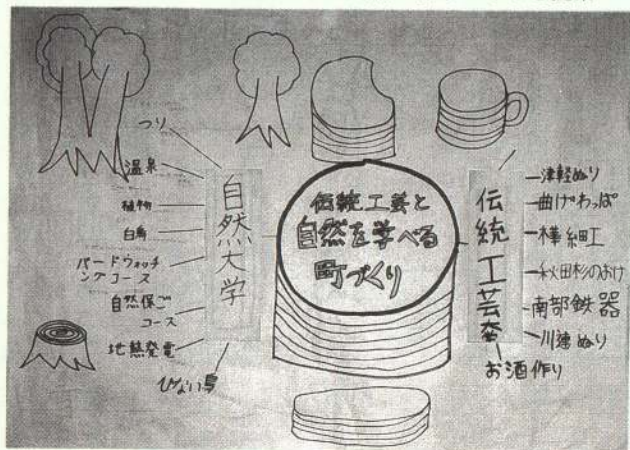 つり
温泉
植物
白鳥
バードウォッチ
ングコース
自然保ご
コース
地熱発電
ひない鳥
自然大学
伝統工芸と
自然を学べる
町づくり
津軽ぬり
曲げわっぱ
樺細工
秋田杉のおけ
南部鉄器
川連ぬり
お酒作り